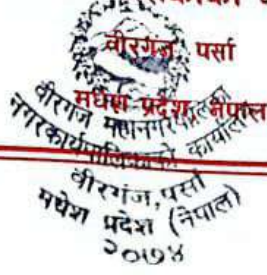 वीरगंज, पर्सा
मधेश प्रदेश, नेपाल
वीरगंज महानगरपालिका
नगरकार्यपालिकाको कार्यालय
वीरगंज, पर्सा
मधेश प्रदेश (नेपाल)
२०७४